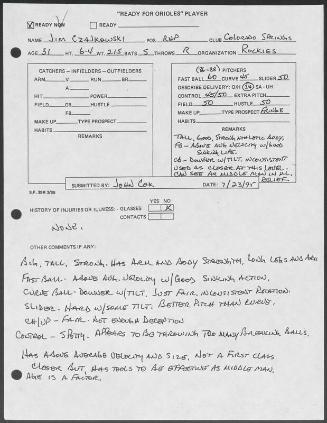 "READY FOR ORIOLES" PLAYER
☒ READY NOW ☐ READY
NAME JIM CZAJKOWSKI POS. RHP CLUB COLORADO SPRINGS
AGE 31 HT. 6-4 WT. 215 BATS S THROWS R ORGANIZATION ROCKIES
CATCHERS - INFIELDERS - OUTFIELDERS
ARM RUN BAT
A
HIT POWER
FIELD OR HUSTLE
FB
MAKE UP TYPE PROSPECT
HABITS
REMARKS
PITCHERS
FAST BALL 60 CURVE 45 SLIDER 50
DESCRIBE DELIVERY: OH 3/4 SA-UH
CONTROL 45/50 EXTRA PITCH
FIELD 50 HUSTLE 50
MAKE UP TYPE PROSPECT FRINGE
HABITS
REMARKS
TALL, GOOD, STRONG ATHLETIC BODY,
FB - ABOVE AVG VELOCITY W/GOOD
SINKING LIFE.
CB - DOWNER W/TILT, INCONSISTENT
USED AS CLOSER AT THIS LEVEL.
CAN SEE AS MIDDLE MAN IN M.L.
RELIEF.
SUBMITTED BY: JOHN COX DATE: 7/23/95
YES NO
HISTORY OF INJURIES OR ILLNESS: GLASSES ☐ ☒
CONTACTS ☐ ☐
NONE.
OTHER COMMENTS IF ANY:
BIG, TALL, STRONG. HAS ARM AND BODY STRENGTH, LONG LEGS AND ARMS
FASTBALL - ABOVE AVG. VELOCITY W/GOOD SINKING ACTION.
CURVE BALL - DOWNER W/TILT, JUST FAIR, INCONSISTENT ROTATION.
SLIDER - HARD W/SOME TILT. BETTER PITCH THAN CURVE.
CH/UP - FAIR - NOT ENOUGH DECEPTION
CONTROL - SPOTTY. APPEARS TO BE THROWING TOO MANY BREAKING BALLS.
HAS ABOVE AVERAGE VELOCITY AND SIZE, NOT A FIRST CLASS
CLOSER BUT, HAS TOOLS TO BE EFFECTIVE AS MIDDLE MAN.
AGE IS A FACTOR.